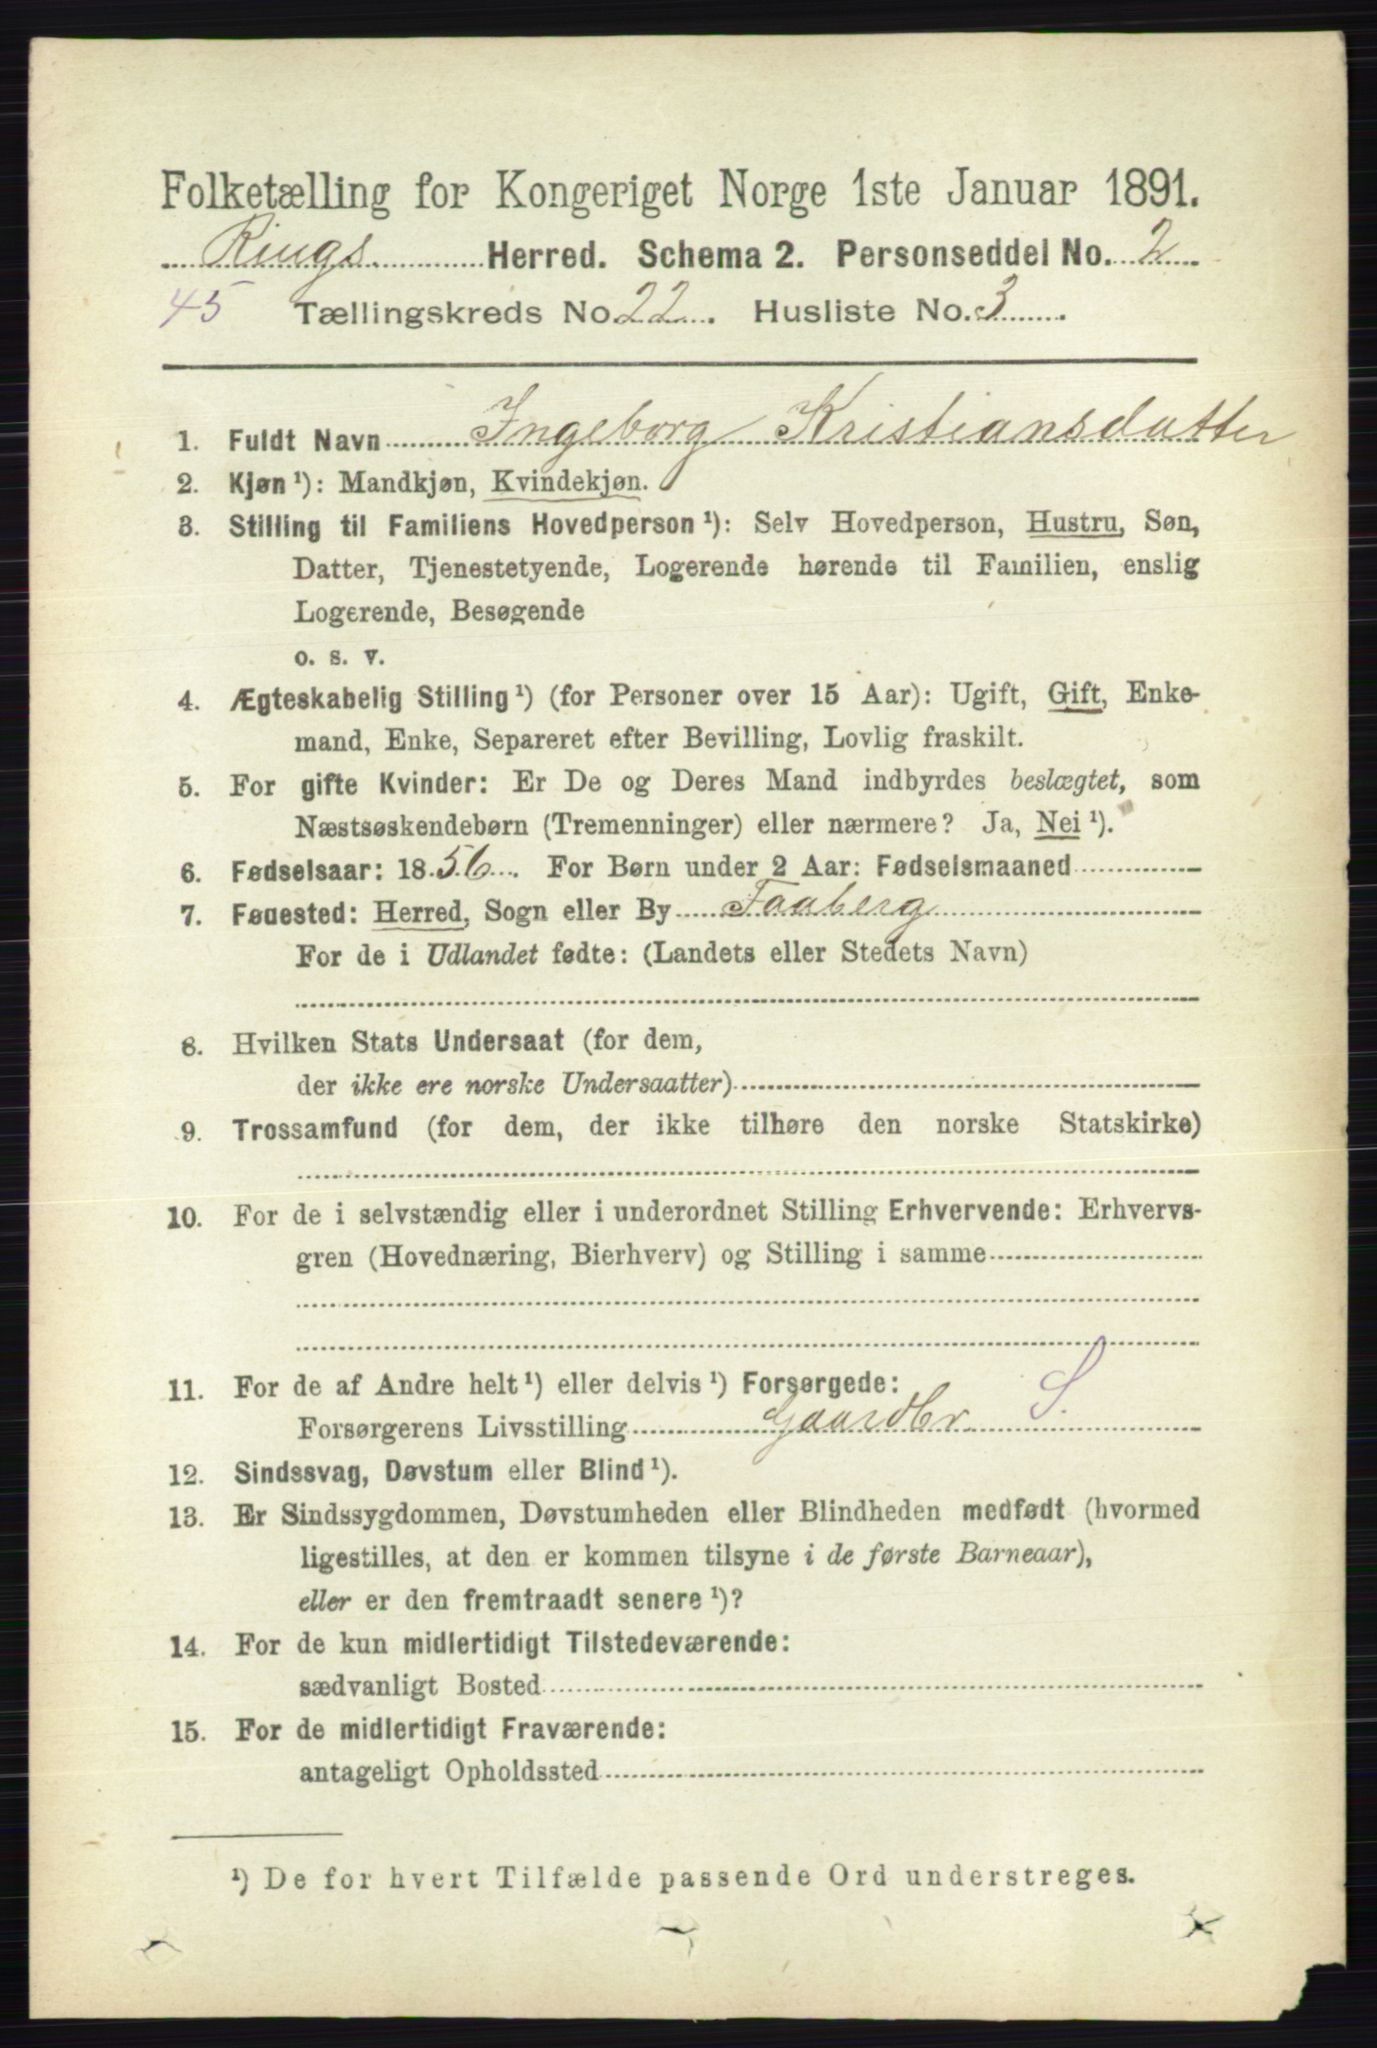 Folketælling for Kongeriget Norge 1ste Januar 1891.
Rings Herred. Schema 2. Personseddel No. 2
45 Tællingskreds No. 22. Husliste No. 3.
1. Fuldt Navn Ingeborg Kristiansdatter
2. Kjøn ¹): Mandkjøn, Kvindekjøn.
3. Stilling til Familiens Hovedperson ¹): Selv Hovedperson, Hustru, Søn,
Datter, Tjenestetyende, Logerende hørende til Familien, enslig
Logerende, Besøgende
o. s. v.
4. Ægteskabelig Stilling ¹) (for Personer over 15 Aar): Ugift, Gift, Enke-
mand, Enke, Separeret efter Bevilling, Lovlig fraskilt.
5. For gifte Kvinder: Er De og Deres Mand indbyrdes beslægtet, som
Næstsøskendebørn (Tremenninger) eller nærmere? Ja, Nei ¹).
6. Fødselsaar: 1856. For Børn under 2 Aar: Fødselsmaaned
7. Fødested: Herred, Sogn eller By Faaberg
For de i Udlandet fødte: (Landets eller Stedets Navn)
8. Hvilken Stats Undersaat (for dem,
der ikke ere norske Undersaatter)
9. Trossamfund (for dem, der ikke tilhøre den norske Statskirke)
10. For de i selvstændig eller i underordnet Stilling Erhvervende: Erhvervs-
gren (Hovednæring, Bierhverv) og Stilling i samme
11. For de af Andre helt ¹) eller delvis ¹) Forsørgede:
Forsørgerens Livsstilling Gaardbr. S.
12. Sindssvag, Døvstum eller Blind ¹).
13. Er Sindssygdommen, Døvstumheden eller Blindheden medfødt (hvormed
ligestilles, at den er kommen tilsyne i de første Barneaar),
eller er den fremtraadt senere ¹)?
14. For de kun midlertidigt Tilstedeværende:
sædvanligt Bosted
15. For de midlertidigt Fraværende:
antageligt Opholdssted
¹) De for hvert Tilfælde passende Ord understreges.